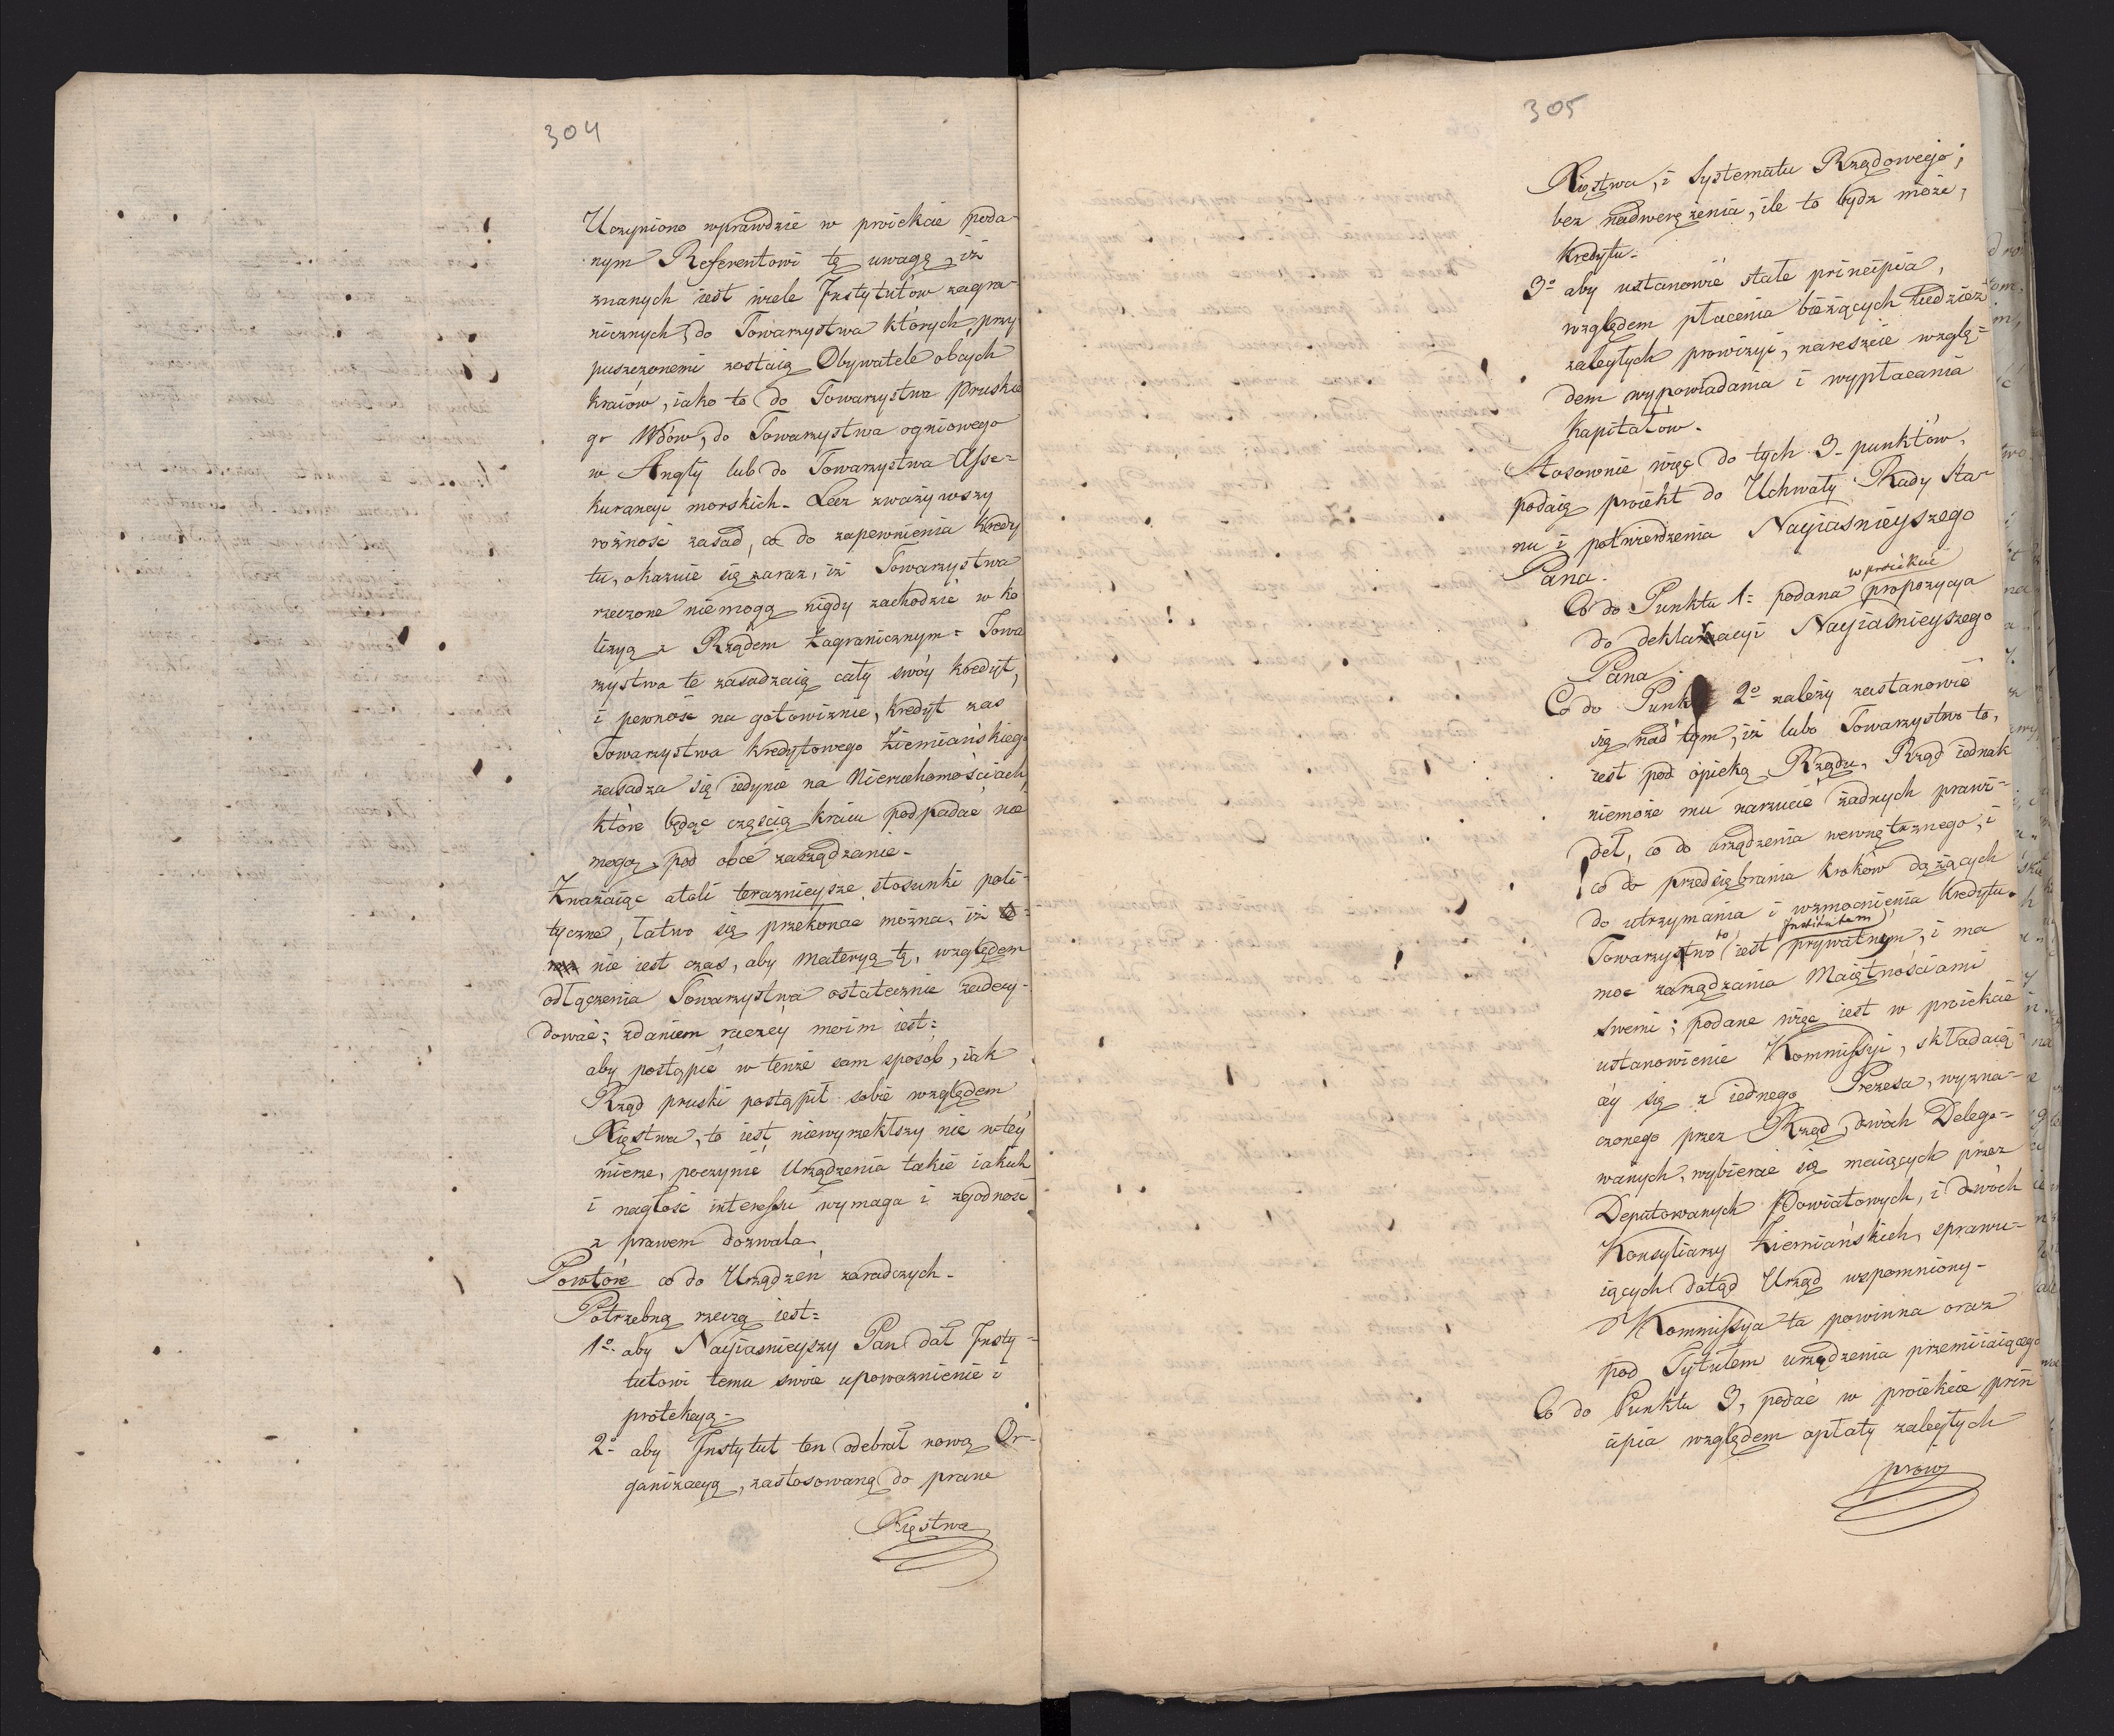 304
Uczyniono wprawdzie w proiekcie poda-
nym Referentowi tę uwagę, iż
znanych iest wiele Instytutów zagra-
nicznych, do Towarzystwa których przy
puszczonemi zostaią Obywatele obcych
kraiów, iako to do Towarzystwa Pruskie
go Wdów, do Towarzystwa ogniowego
w Angly lub do Towarzystwa Asse-
kurancyi morskich. Lecz zważywszy
rożność zasad, co do zapewnienia kredy
tu, okazuie się zaraz, iż Towarzystwa
rzeczone niemogą nigdy zachodzić w ko
lizyą z Rządem Zagranicznym. Towa
rzystwa te zasadzaią cały swóy kredyt,
i pewność na gotowiznie, kredyt zas
Towarzystwa kredytowego Ziemiańskiego
zasadza się iedynie na Nieruchomościach,
które będąc częścią kraiu podpadać nie
mogą pod obce zarządzanie.
Zważaiąc atoli teraznieysze stosunki poli-
tyczne, łatwo się przekonac można, iż
nie iest czas, aby materyą tę, względem
odłączenia Towarzystwa ostatecznie zadecy-
dować; zdaniem raczéy moim iest:
aby postąpić w tenże sam sposób, iak
Rząd pruski postąpił sobie względem
Xięstwa, to iest niewyrzekłszy nic w téy
mierze, poczynić Urządzenia takie iakich
i nagłość interessu wymaga i zgodność
z prawem dozwala.
Powtóre co do Urządzeń zaradczych.
Potrzebną rzeczą iest:
1o. aby Nayiasnieyszy Pan dał Insty-
tutowi temu swoie upoważnienie i
protekcyą.
2o. aby Instytut ten odebrał nową Or-
ganizacyą, zastosowaną do praw
Xięstwa
305
Xięstwa, i Systematu Rządowego;
bez nadwerężenia, ile to bydz może,
kredytu.
3o aby ustanowić stałe principia,
względem płacenia bieżących tudzież
zaległych prowizyi, nareszcie wzglę-
dem wypowiadania i wypłacania
kapitałów.
Stosownie więc do tych 3. punktów,
podaię proiekt do Uchwały Rady Sta-
nu i potwierdzenia Nayiasnieyszego
Pana.
w proiekcie
Co do Punktu 1. podana propozycya
do deklaracyi Nayiaśnieyszego
Pana
Co do Punktu 2o należy zastanowić
się nad tym, iż lubo Towarzystwo to,
iest pod opieką Rządu, Rząd iednak
niemoże mu narzucić żadnych prawi-
deł, co do urządzenia wewnętrznego, i
co do przedsiębrania kroków dążących
do utrzymania i wzmocnienia kredytu.
to Institutem
Towarzystwo iest prywatnym, i ma
moc zarządzania Maiętnościami
swemi; podane więc iest w proiekcie
ustanowienie Kommissyi, składaią-
céy się z iednego Prezesa, wyzna-
czonego przez Rząd, dwóch Delego-
wanych, wybierać się maiących przez
Deputowanych Powiatowych, i dwóch
Konsyliarzy Ziemiańskich, sprawu-
iących dotąd Urząd wspomniony.
Kommissya ta powinna oraz
pod Tytułem urządzenia przemiiaiącego
Co do Punktu 3, podać w proiekcie prin
cipia względem opłaty zaległych
prowi